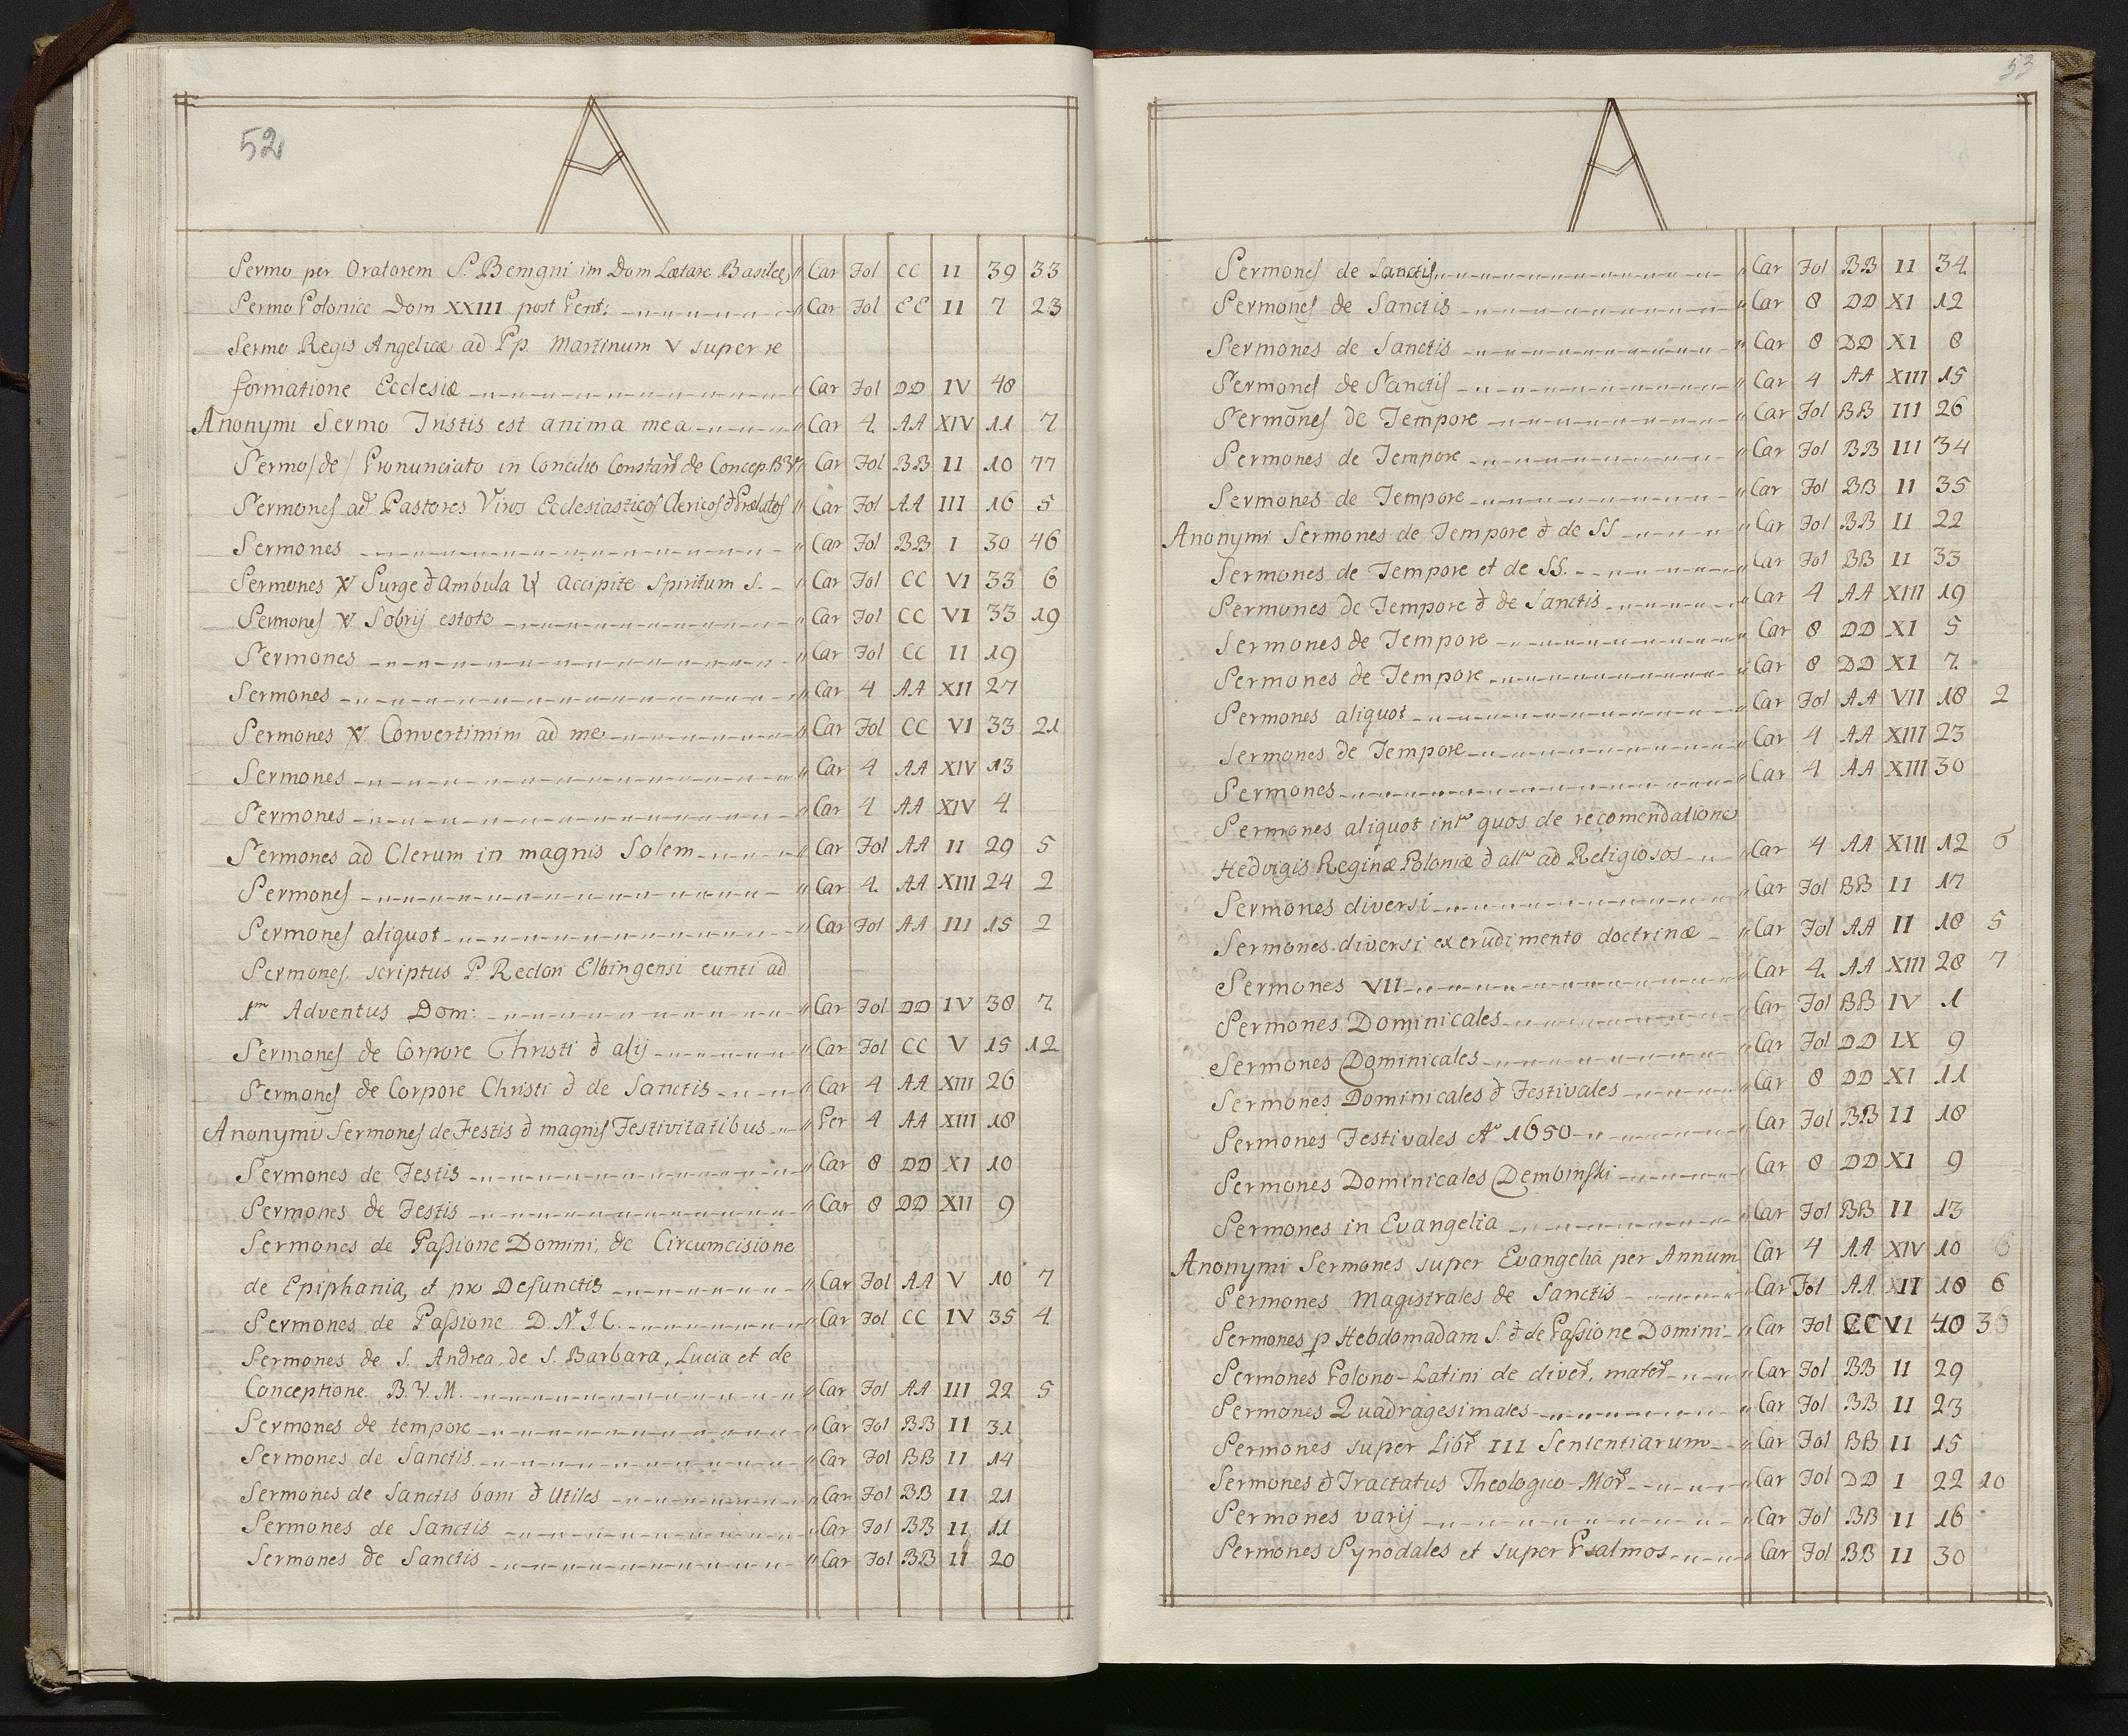 52
A
Sermo per Oratorem S. Benigni in Dom Lætare Basileæ " Car Fol CC II 39 33
Sermo Polonice Dom XXIII post Pent: " Car Fol CC II 7 23
Sermo Regis Angelicæ ad Pp. Martinum V super re
formatione Ecclesiæ " Car Fol DD IV 48
Anonymi Sermo Tristis est anima mea " Car 4 AA XIV 11 7
Sermo /de/ Pronunciato in Concilio Constant de Concep. BVM Car Fol BB II 10 77
Sermones ad Pastores Viros Ecclesiasticos Clericos & Prælatos " Car Fol AA III 16 5
Sermones " Car Fol BB I 30 46
Sermones V Surge & Ambula V Accipite Spiritum S. " Car Fol CC VI 33 6
Sermones V Sobrij estote " Car Fol CC VI 33 19
Sermones " Car Fol CC II 19
Sermones " Car 4 AA XII 27
Sermones V. Convertimini ad me " Car Fol CC VI 33 21
Sermones " Car 4 AA XIV 13
Sermones " Car 4 AA XIV 4
Sermones ad Clerum in magnis Solem " Car Fol AA II 29 5
Sermones " Car 4 AA XIII 24 2
Sermones aliquot " Car Fol AA III 15 2
Sermones scriptus P. Rectori Elbingensi eunti ad
1m Adventus Dom: " Car Fol DD IV 38 7
Sermones de Corpore Christi & alij " Car Fol CC V 15 12
Sermones de Corpore Christi & de Sanctis " Car 4 AA XIII 26
Anonymi Sermones de Festis & magnis Festivitatibus " Per 4 AA XIII 18
Sermones de Festis " Car 8 DD XI 10
Sermones de Festis " Car 8 DD XII 9
Sermones de Passione Domini, de Circumcisione
de Epiphania, et pro Defunctis " Car Fol AA V 10 7
Sermones de Passione D.N.J.C. " Car Fol CC IV 35 4
Sermones de S. Andrea, de S. Barbara, Lucia et de
Conceptione B.V.M. " Car Fol AA III 22 5
Sermones de tempore " Car Fol BB II 31
Sermones de Sanctis " Car Fol BB II 14
Sermones de Sanctis boni & Utiles " Car Fol BB II 21
Sermones de Sanctis " Car Fol BB II 11
Sermones de Sanctis " Car Fol BB II 20
53
A
Sermones de Sanctis " Car Fol BB II 34
Sermones de Sanctis " Car 8 DD XI 12
Sermones de Sanctis " Car 8 DD XI 8
Sermones de Sanctis " Car 4 AA XIII 15
Sermones de Tempore " Car Fol BB III 26
Sermones de Tempore " Car Fol BB III 34
Sermones de Tempore " Car Fol BB II 35
Anonymi Sermones de Tempore & de SS " Car Fol BB II 22
Sermones de Tempore et de SS. " Car Fol BB II 33
Sermones de Tempore & de Sanctis " Car 4 AA XIII 19
Sermones de Tempore " Car 8 DD XI 5
Sermones de Tempore " Car 8 DD XI 7
Sermones aliquot " Car Fol AA VII 18 2
Sermones de Tempore " Car 4 AA XIII 23
Sermones " Car 4 AA XIII 30
Sermones aliquot intr quos de recomendatione
Hedvigis Reginæ Poloniæ & altr ad Religiosos " Car 4 AA XIII 12 6
Sermones diversi " Car Fol BB II 17
Sermones diversi ex erudimento doctrinæ " Car Fol AA II 18 5
Sermones VII " Car 4 AA XIII 28 7
Sermones Dominicales " Car Fol BB IV 1
Sermones Dominicales " Car Fol DD IX 9
Sermones Dominicales & Festivales " Car 8 DD XI 11
Sermones Festivales Ao 1650 " Car Fol BB II 18
Sermones Dominicales Dembinski " Car 8 DD XI 9
Sermones in Evangelia " Car Fol BB II 13
Anonymi Sermones super Evangelia per Annum Car 4 AA XIV 10 6
Sermones Magistrales de Sanctis " Car Fol AA XII 18 6
Sermones p Hebdomadam S. & de Passione Domini " Car Fol CC VI 40 36
Sermones Polono-Latini de divers. mater " Car Fol BB II 29
Sermones Quadragesimales " Car Fol BB II 23
Sermones super Libr III Sententiarum " Car Fol BB II 15
Sermones & Tractatus Theologico-Mor " Car Fol DD I 22 10
Sermones varij " Car Fol BB II 16
Sermones Synodales et super Psalmos " Car Fol BB II 30